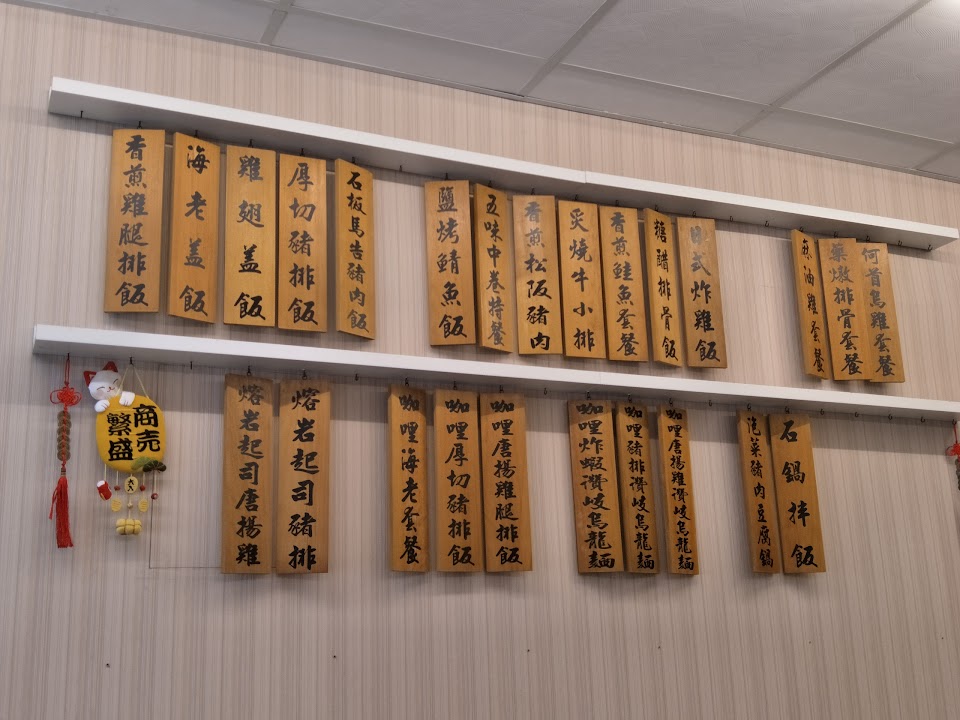 香煎雞腿排飯
海老盖飯
雞翅盖飯
厚切豬排飯
石板馬告豬肉飯
鹽烤鯖魚飯
五味中卷特餐
香煎松阪豬肉
炙燒牛小排
香煎鮭魚套餐
糖醋排骨飯
日式炸雞飯
麻油雞套餐
藥燉排骨套餐
何首烏雞套餐
商売
繁盛
熔岩起司唐揚雞
熔岩起司豬排
咖哩海老套餐
咖哩厚切豬排飯
咖哩唐揚雞腿排飯
咖哩炸蝦讚岐烏龍麵
咖哩豬排讚岐烏龍麵
咖哩唐揚雞讚岐烏龍麵
泡菜豬肉豆腐鍋
石鍋拌飯